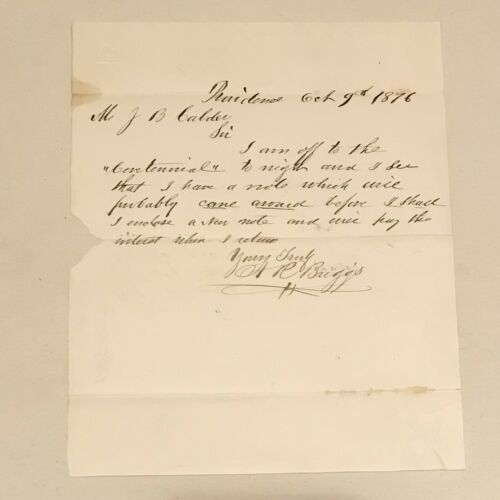 Providence Oct 9th 1876
M J B Calder
Sir
I am off to the
"Centennial" to night and I see
that I have a note which will
probably come around before I shall
I enclose a new note and will pay the
interest when I return
Yours Truly
A R Briggs